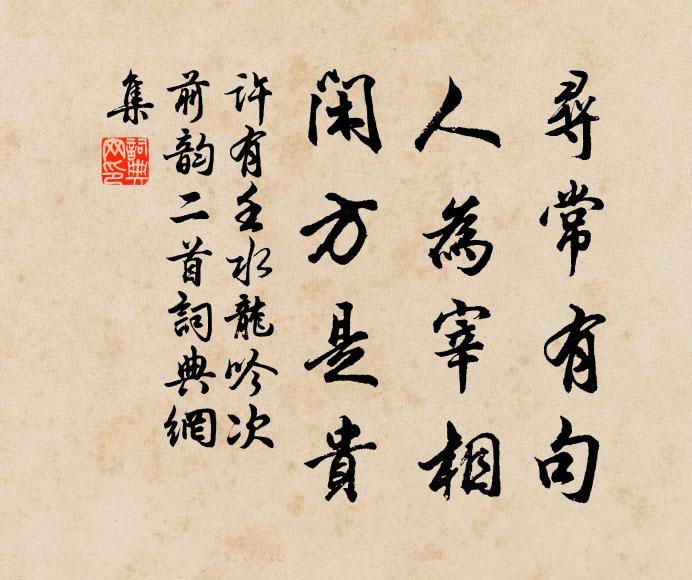 尋常有句
人為宰相
閑方是貴
許有壬水龍吟次
前韵二首詞典網
集
詞典
网印